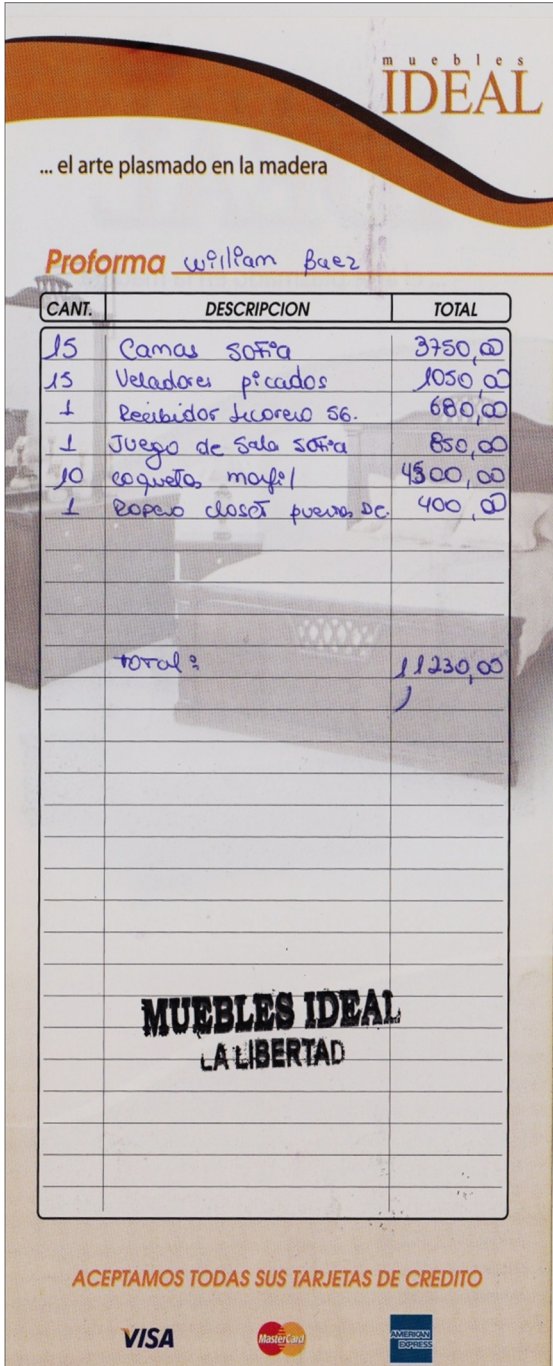 muebles
IDEAL
... el arte plasmado en la madera
Proforma William Baez
CANT. DESCRIPCION TOTAL
15 Camas Sofia 3750,00
15 Veladores picados 1050,00
1 Recibidor Licorero SG. 680,00
1 Juego de Sala Sofia 850,00
10 coquetas marfil 4500,00
1 Ropero closet puertas DC. 400,00
Total: 11230,00
MUEBLES IDEAL
LA LIBERTAD
ACEPTAMOS TODAS SUS TARJETAS DE CREDITO
VISA MasterCard AMERICAN EXPRESS